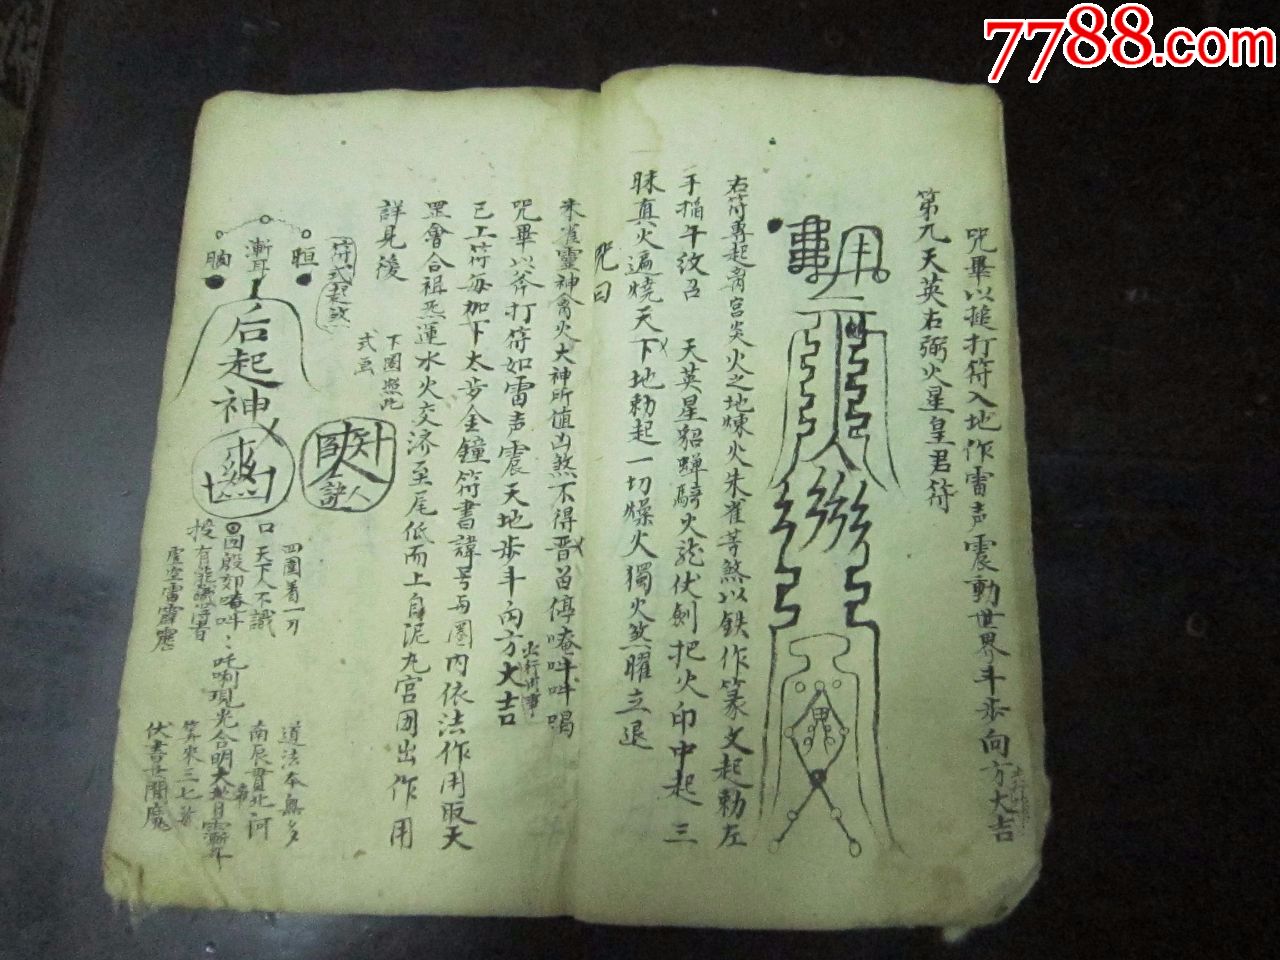 7788.com
咒畢以搥打符入地作雷声震動世界斗步向方大吉
第九天英右弼火星皇君符
右符專起离宮炎火之地煉火朱雀等煞以鉄作篆文起勅左
手掐午紋召 天英星貂蟬騎火龙伏劍把火印中起三
昧真火遍燒天下地勅起一切燥火獨火煞曜立退
咒曰
朱雀靈神禽火大神所值凶煞不得停唵吽吽
咒畢以斧打符如雷声震天地步斗向方大吉
已上符每加下太步金鐘符書諱号内依法作用取天
罡會合祖炁運水火交济至尾低而上自泥丸宮囬出作用
詳見後
下圈照此
式画
符式起煞
漸耳
后起神
四圍看一刀
口天下人不識
投有能識字者
虛空雷霹靂
道法本無多
南辰貫北河
筭來三七等
伏書世間魔